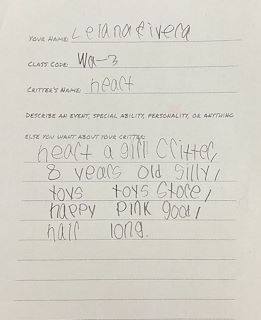 YOUR NAME: Leiana Rivera
CLASS CODE: Wa-3
CRITTER'S NAME: heart
DESCRIBE AN EVENT, SPECIAL ABILITY, PERSONALITY, OR ANYTHING
ELSE YOU WANT ABOUT YOUR CRITTER:
heart a girl Critter,
8 years old silly,
toys toys store,
happy PINK good,
hair long.